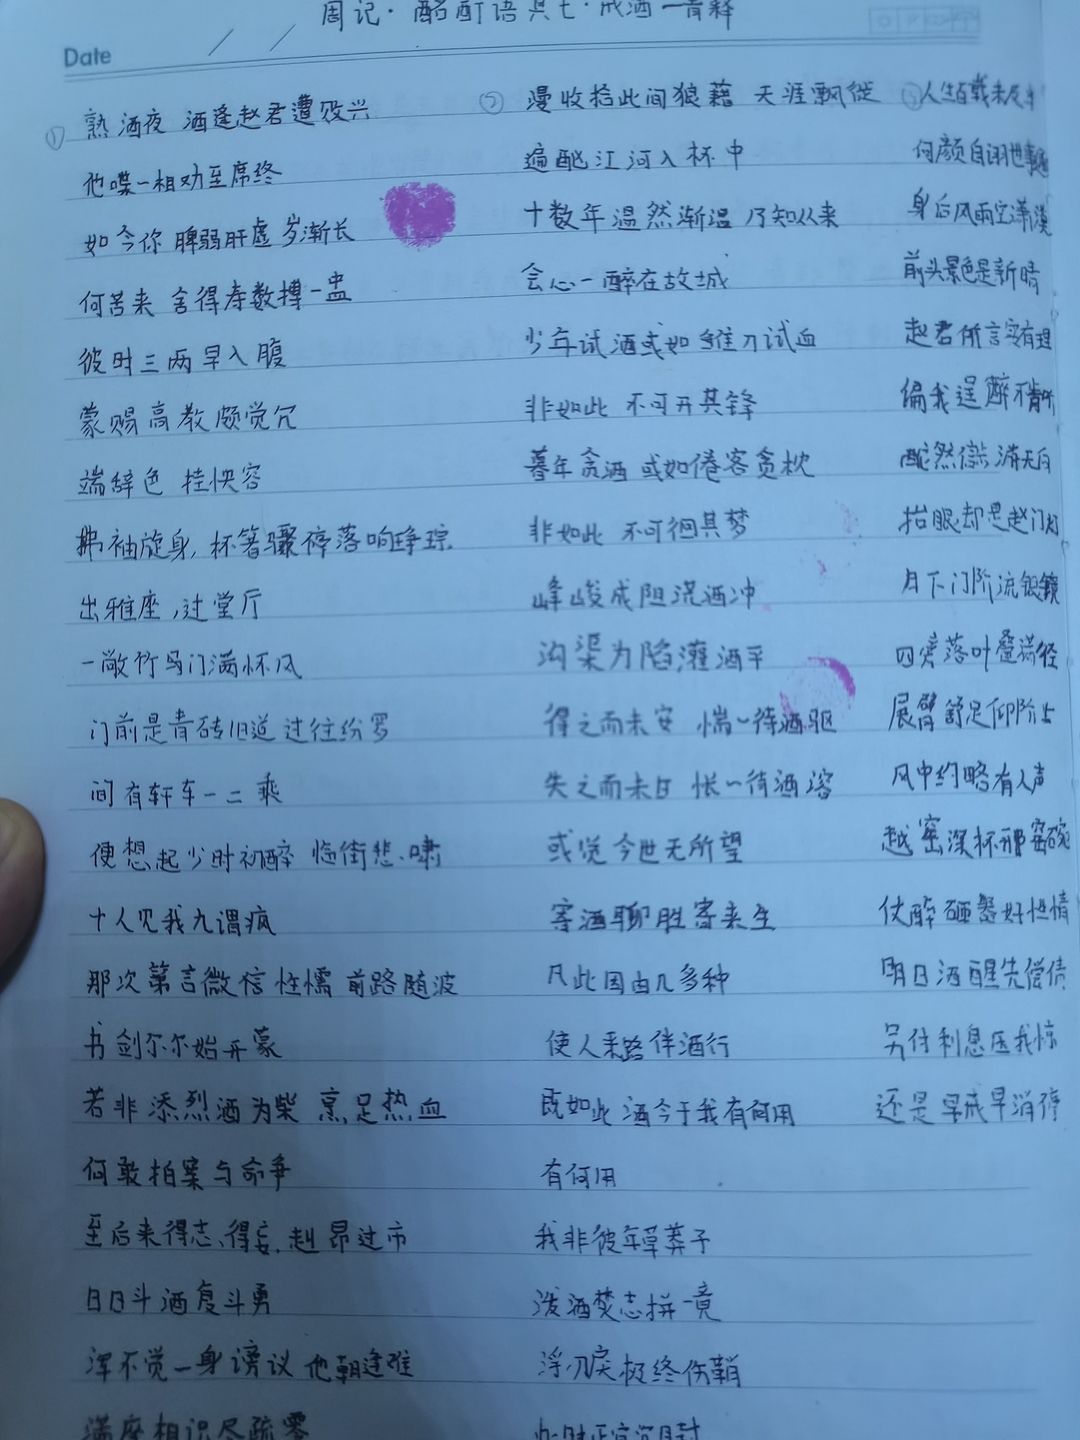 周记·酩酊语其七·戒酒一首释
Date
① 熟酒夜 酒逢赵君遭败兴
他喋一相劝至席终
如今你脾弱肝虚岁渐长
何苦来 舍得寿数搏一盅
彼时三两早入腹
蒙赐高教颇觉冗
端辞色 挂怏容
拂袖旋身,杯箸骤停落响琤琮
出雅座,过堂厅
一敞竹马门满怀风
门前是青砖旧道 过往纷罗
间有轩车一二乘
便想起少时初醉 临街悲啸
十人见我九谓疯
那次第言微信性懦 前路随波
书剑尔尔始开蒙
若非添烈酒为柴 烹足热血
何敢拍案与命争
至后来得志、得妄,赳昂过市
日日斗酒复斗勇
浑不觉一身谤议 他朝逢难
满座相识尽疏零
② 漫收拾此间狼藉 天涯飘徙
遍酏江河入杯中
十数年温然渐温 乃知从来
会心一醉在故城
少年试酒或如锥刀试血
非如此 不可开其锋
暮年贪酒 或如倦客贪枕
非如此 不可徊其梦
峰峻成阻浇酒冲
沟渠为陷灌酒平
得之而未安 惴一待酒驱
失之而未甘 怅一待酒溶
或觉今世无所望
寄酒聊胜寄来生
凡此因由几多种
使人乘路伴酒行
既如此 酒今于我有何用
有何用
我非彼年草莽子
泼酒焚志拼一竟
浮刀戾极终伤鞘
③ 人生百载未及半
何颜自诩世事通
身后风雨空潇潇
前头景色是新晴
赵君所言实有理
偏我逞醉不肯听
酡然
抬眼却是赵门灯
月下门阶流银镜
四旁落叶叠荷径
展臂舒足仰阶上
风中约略有人声
越窑深杯邢窑碗
仗醉砸磬好性情
明日酒醒先偿债
另付利息压我惊
还是早戒早消停